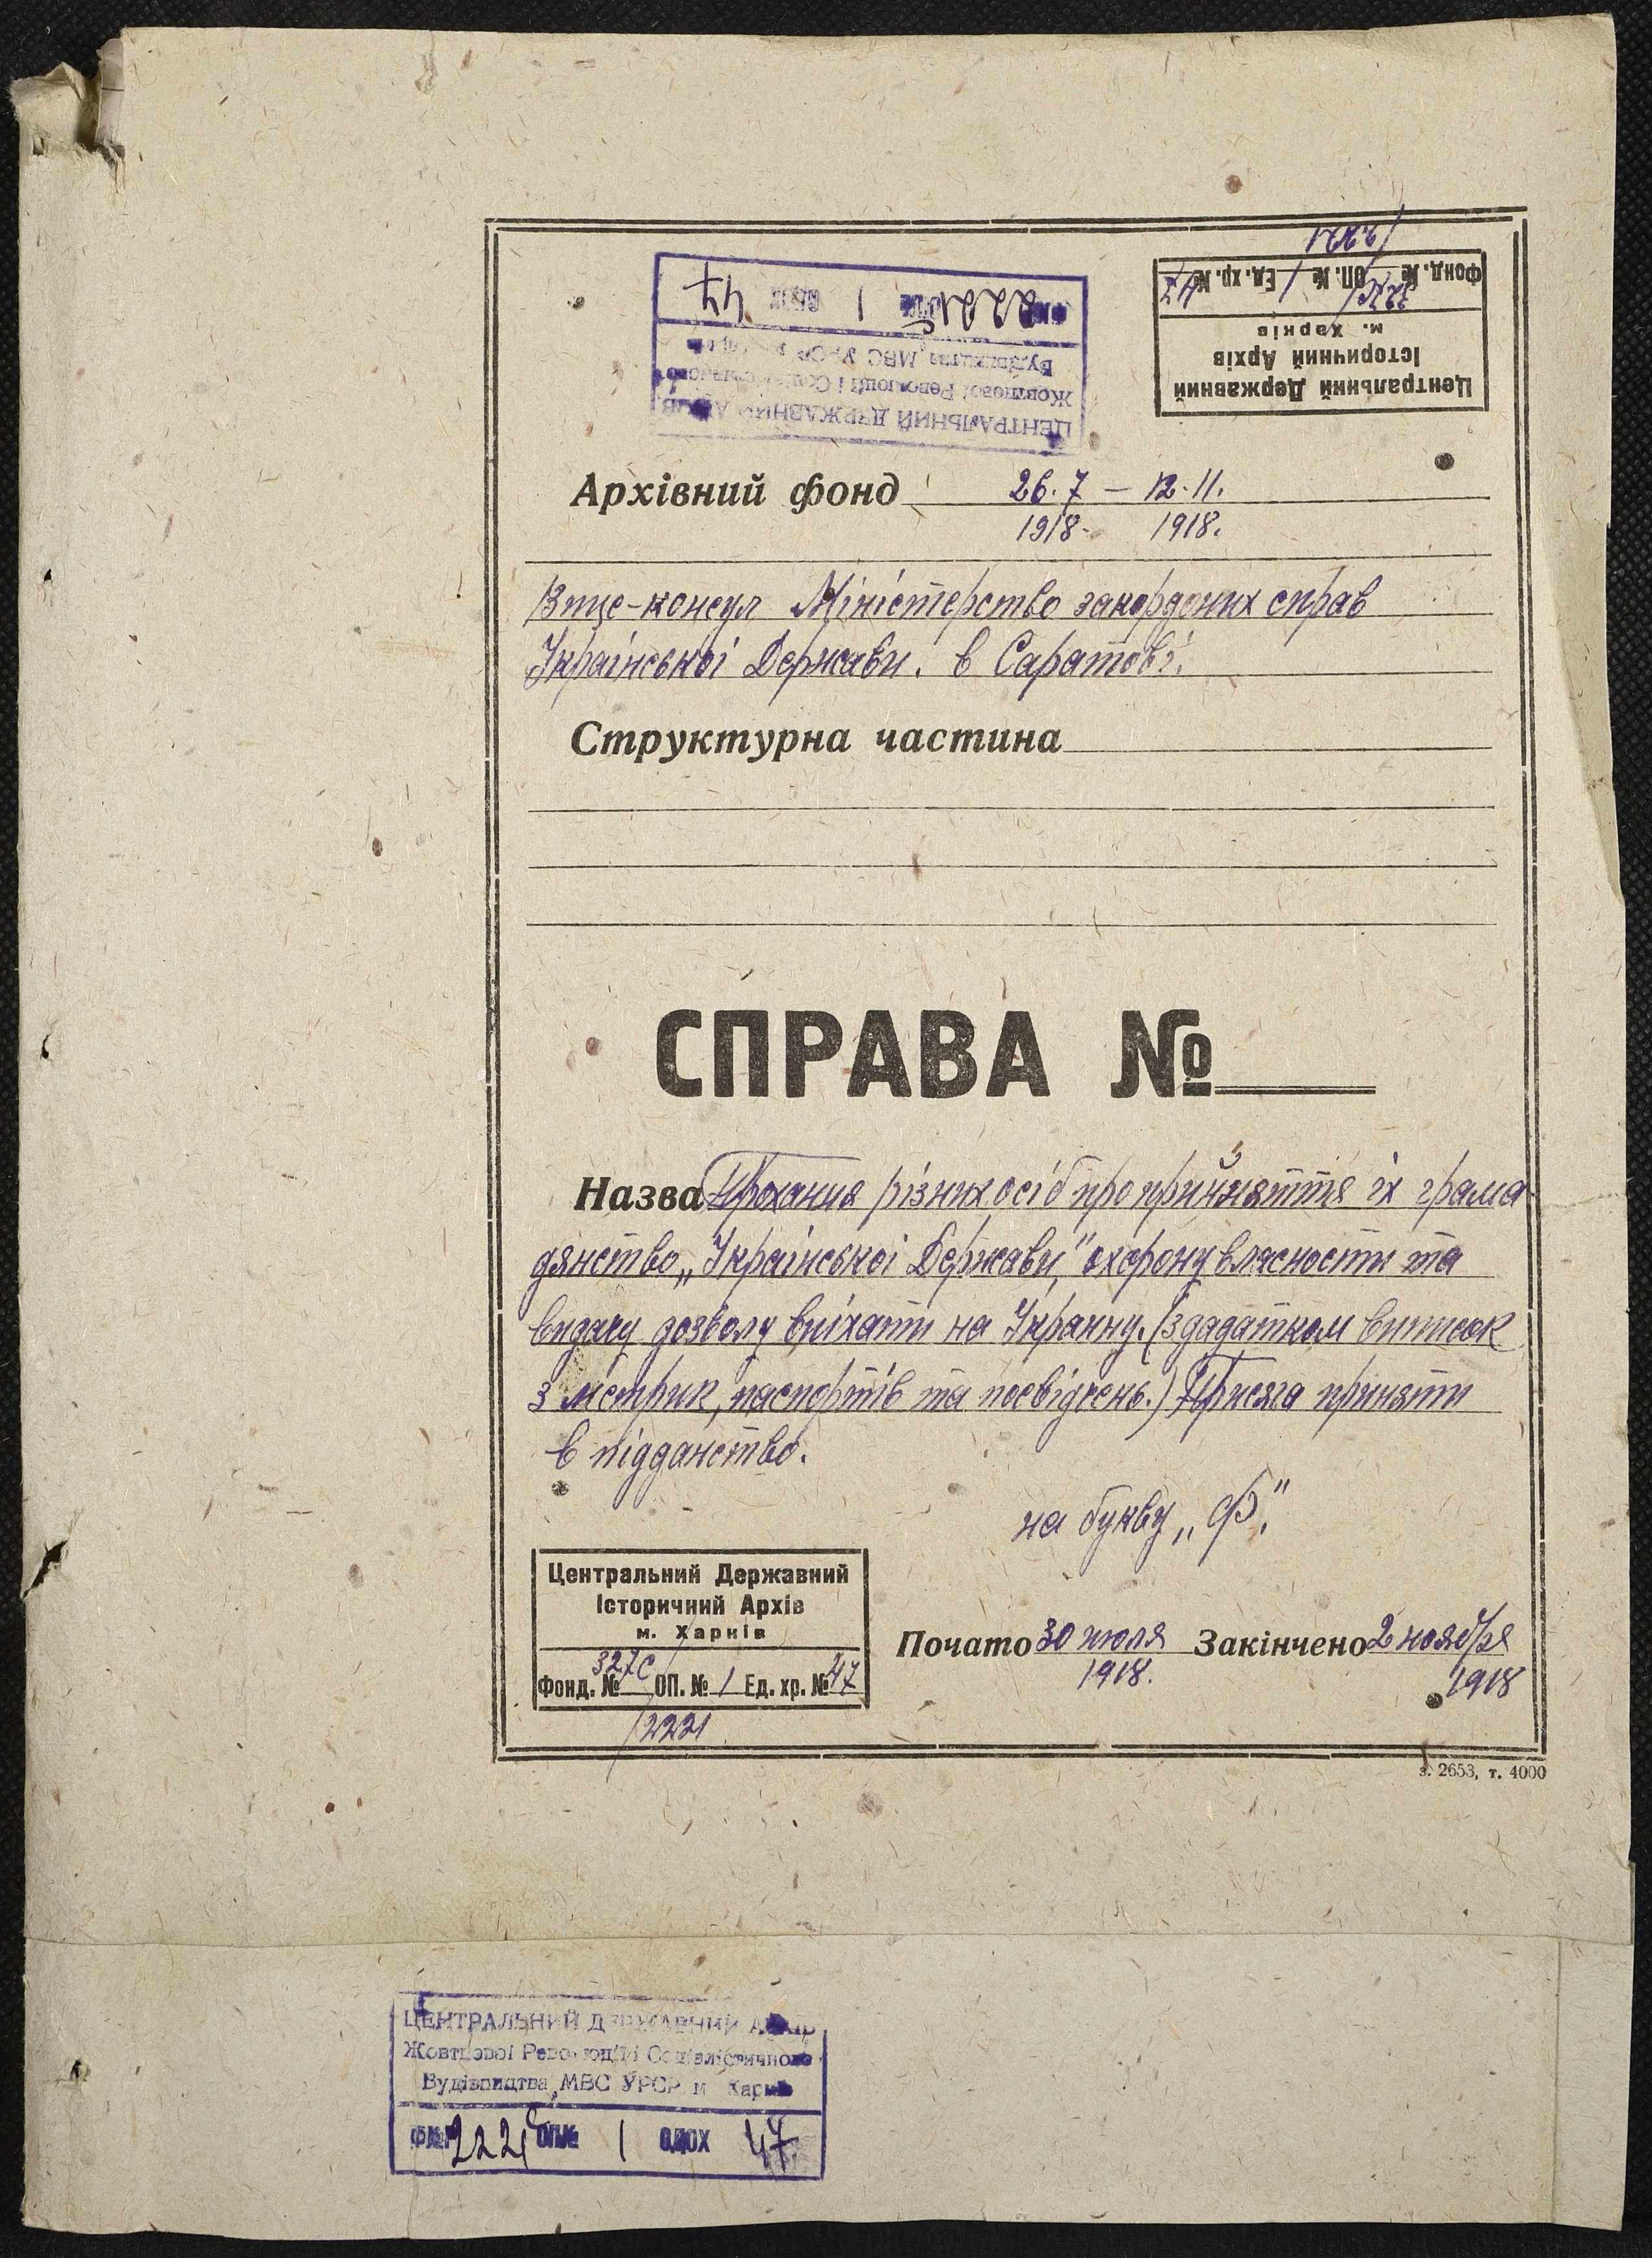 Фонд. № 327с ОП. № 1 Ед. хр. № 47
/2221
Центральний Державний
Історичний Архів
м. Харків
ЦЕНТРАЛЬНИЙ ДЕРЖАВНИЙ АРХІВ
Жовтневої Революції і Соціалістичного
Будівництва МВС УРСР м Харків
2221с 1 47
Архівний фонд 26.7 – 12.11.
1918. 1918.
Вице-консул Міністерство закордоних справ
Української Держави. в Саратові.
Структурна частина
СПРАВА №
Назва Прохання різних осіб про прийняття їх грама
дянство „Української Держави," охорону власности та
видачу дозволу виїхати на Украину. (з дадатком виписок
з метрик, паспортів та посвідчень.) Присяга приняти
в підданство.
на букву „Ф".
Центральний Державний
Історичний Архів
м. Харків
Фонд. № 327с ОП. № 1 Ед. хр. № 47
/2221
Почато 30 июля Закінчено 2 ноября
1918. 1918
з. 2653, т. 4000
ЦЕНТРАЛЬНИЙ ДЕРЖАВНИЙ АРХІВ
Жовтневої Революції і Соціалістичного
Будівництва МВС УРСР м Харків
Ф№ 2221с ОП№ 1 ОДОХ 47